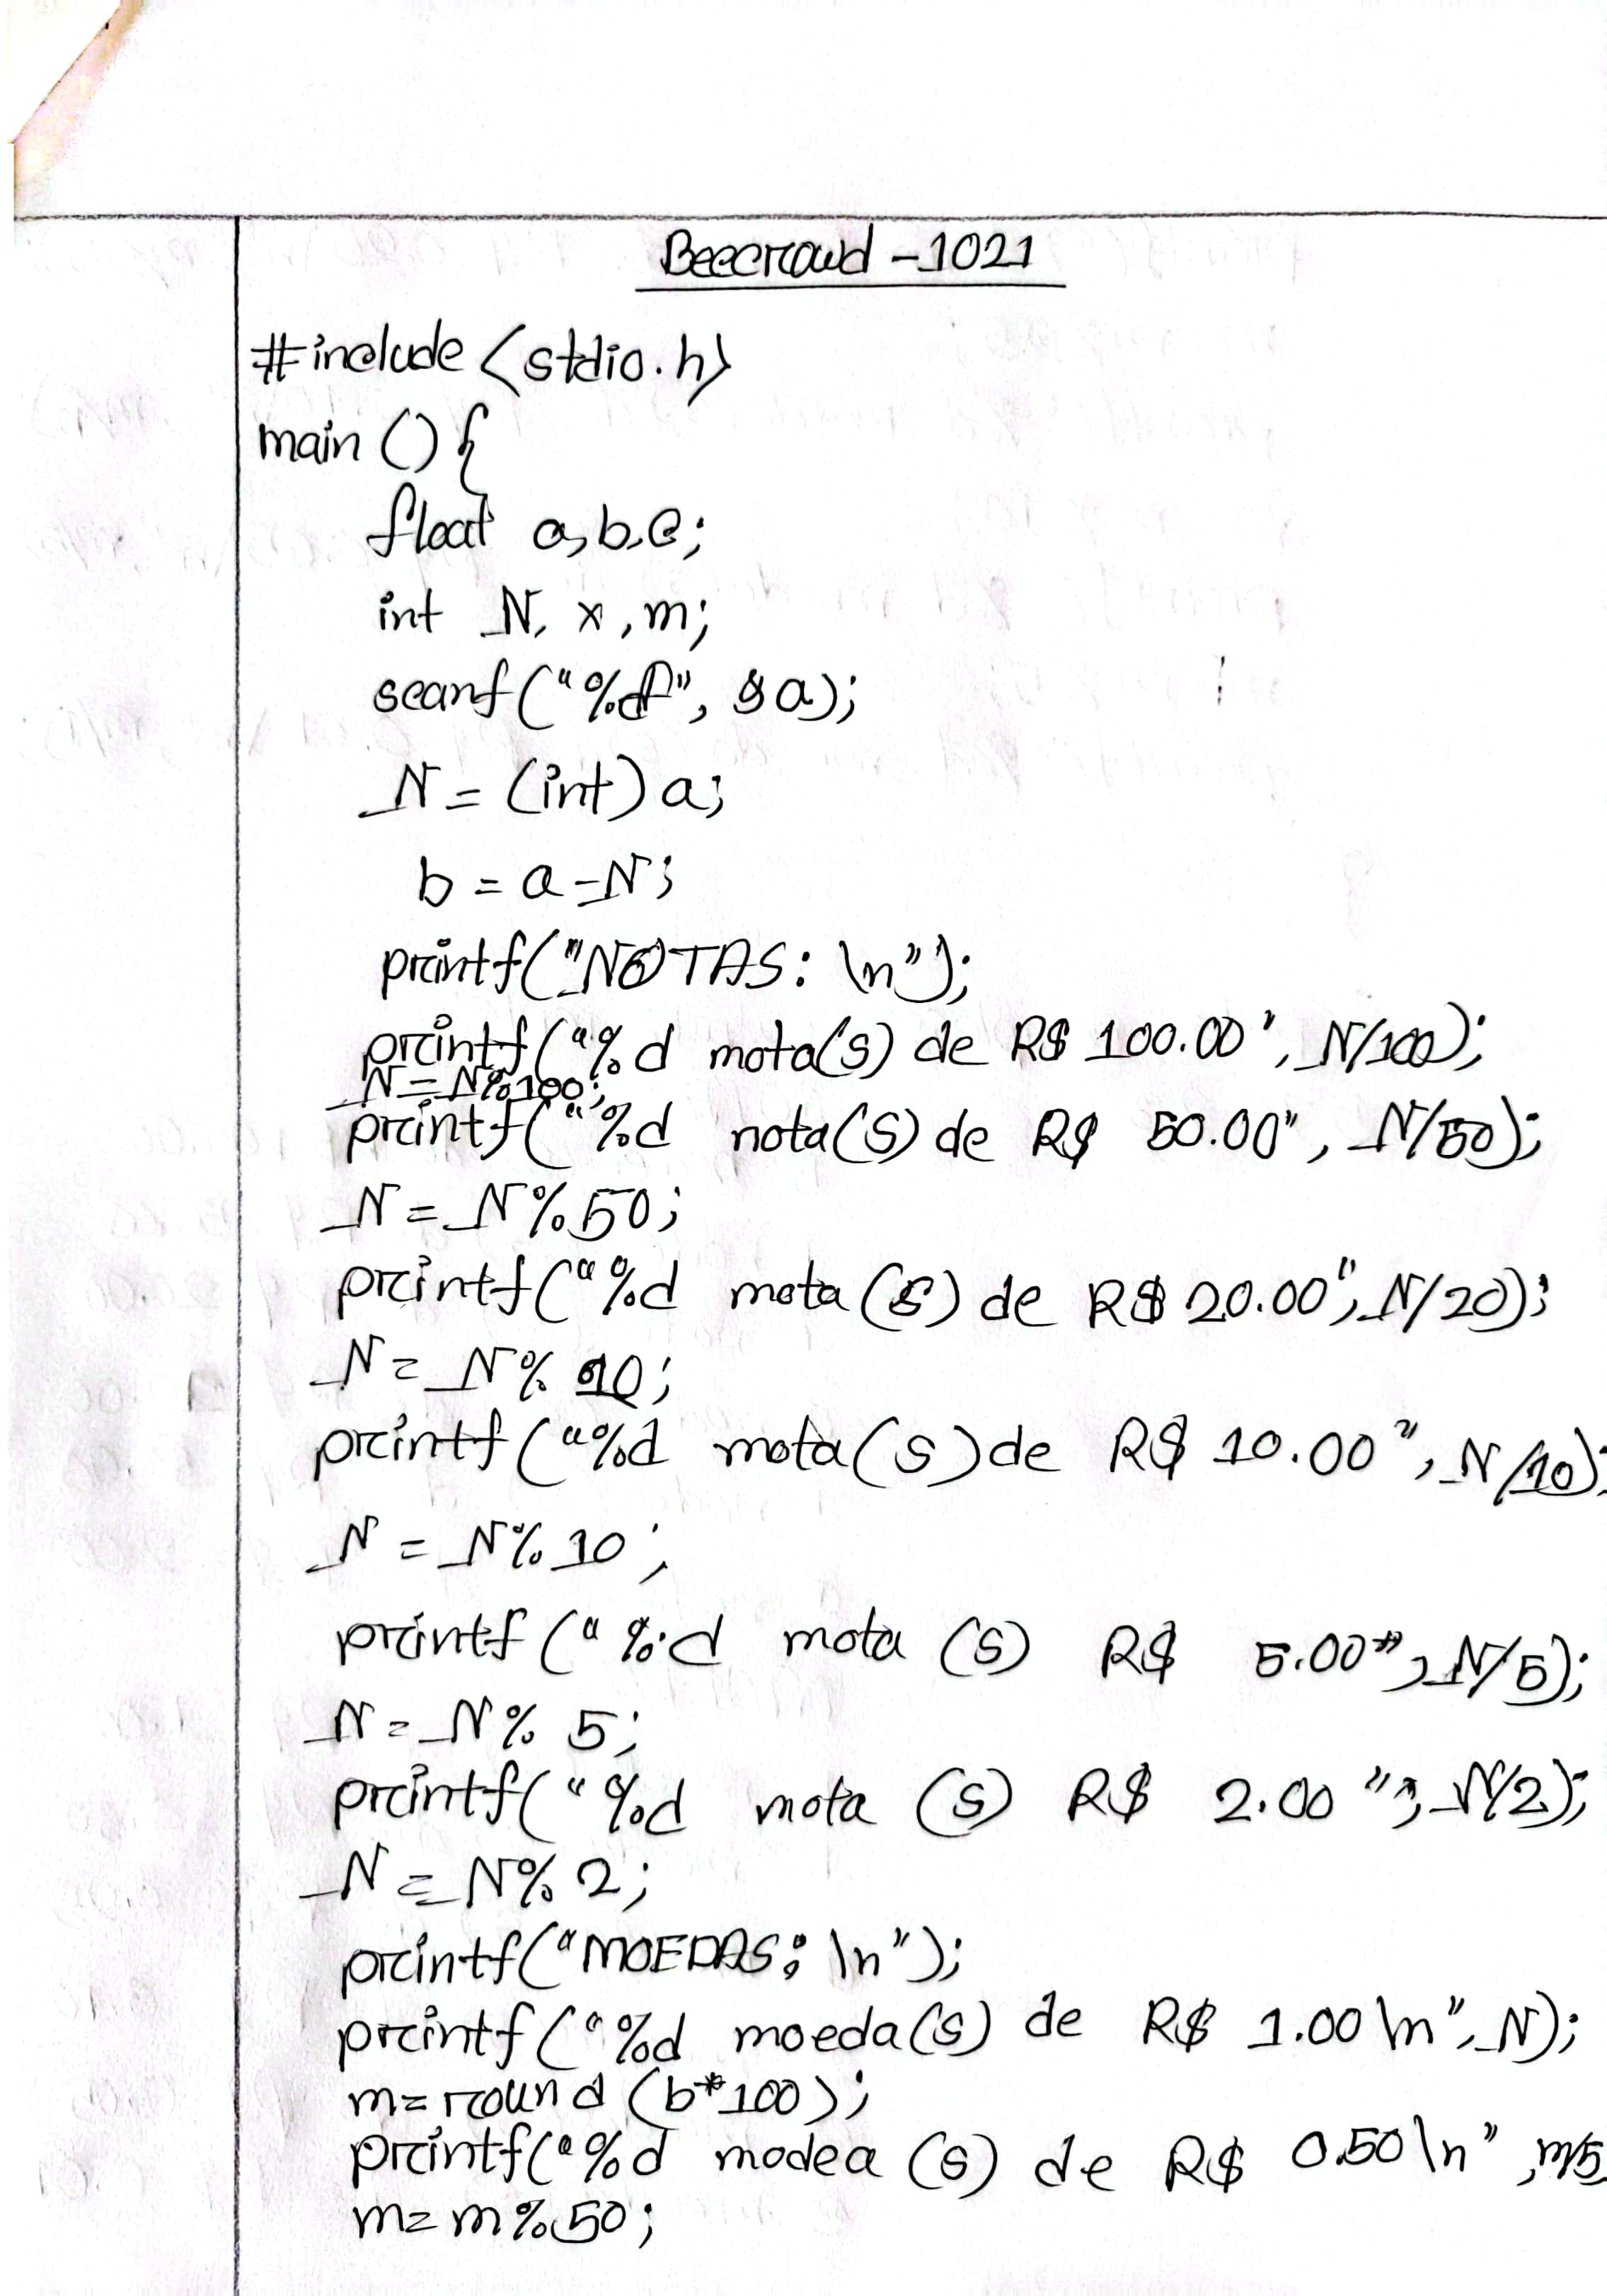 Beecrowd - 1021
#include <stdio.h>
main () {
float a,b,c;
int N, x, m;
scanf ("%f", &a);
N = (int) a;
b = a - N;
printf("NOTAS: \n");
printf("%d nota(s) de R$ 100.00", N/100);
N = N%100;
printf("%d nota(s) de R$ 50.00", N/50);
N = N%50;
printf("%d nota (s) de R$ 20.00", N/20);
N = N% 10;
printf("%d nota (s) de R$ 10.00", N/10);
N = N% 10;
printf("%d nota (s) R$ 5.00", N/5);
N = N% 5;
printf("%d nota (s) R$ 2.00", N/2);
N = N% 2;
printf("MOEDAS: \n");
printf("%d moeda(s) de R$ 1.00\n", N);
m = round (b*100);
printf("%d modea (s) de R$ 0.50\n", m/5
m = m%50;